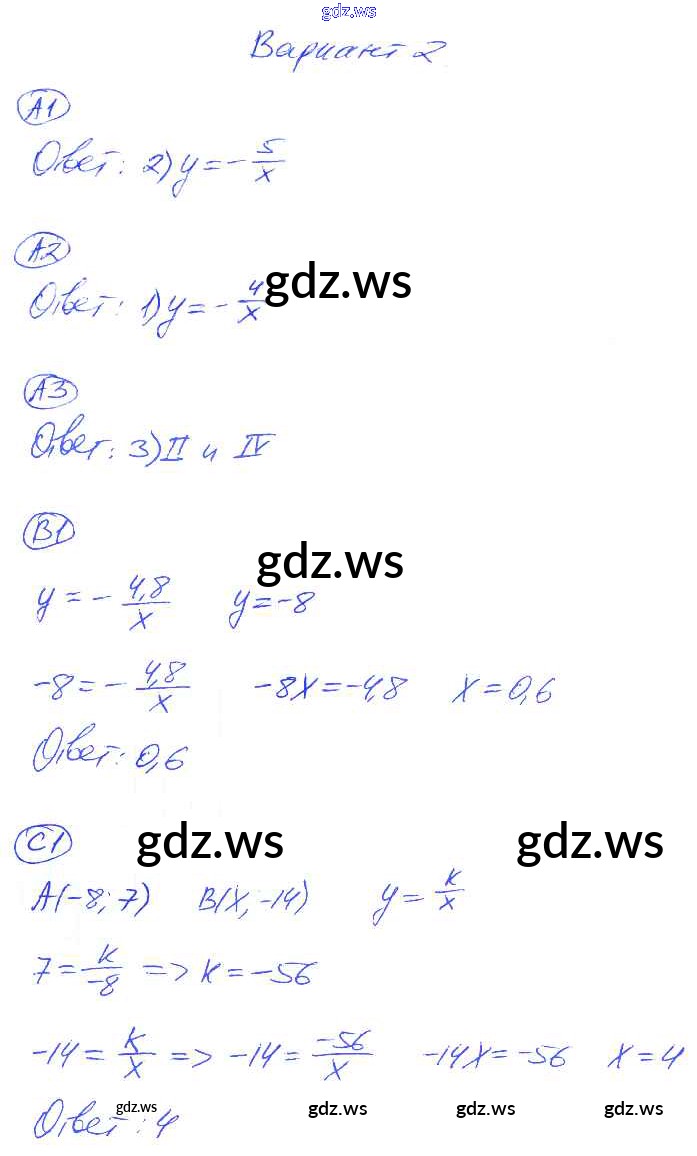 gdz.ws
Вариант 2
А1
Ответ: 2) y = -5/x
А2
Ответ: 1) y = -4/x gdz.ws
А3
Ответ: 3) II и IV
В1
gdz.ws
y = -4,8/x y = -8
-8 = -4,8/x -8x = -4,8 x = 0,6
Ответ: 0,6
С1 gdz.ws gdz.ws
А(-8; 7) В(x; -14) y = k/x
7 = k/-8 => k = -56
-14 = k/x => -14 = -56/x -14x = -56 x = 4
Ответ: 4 gdz.ws gdz.ws gdz.ws gdz.ws